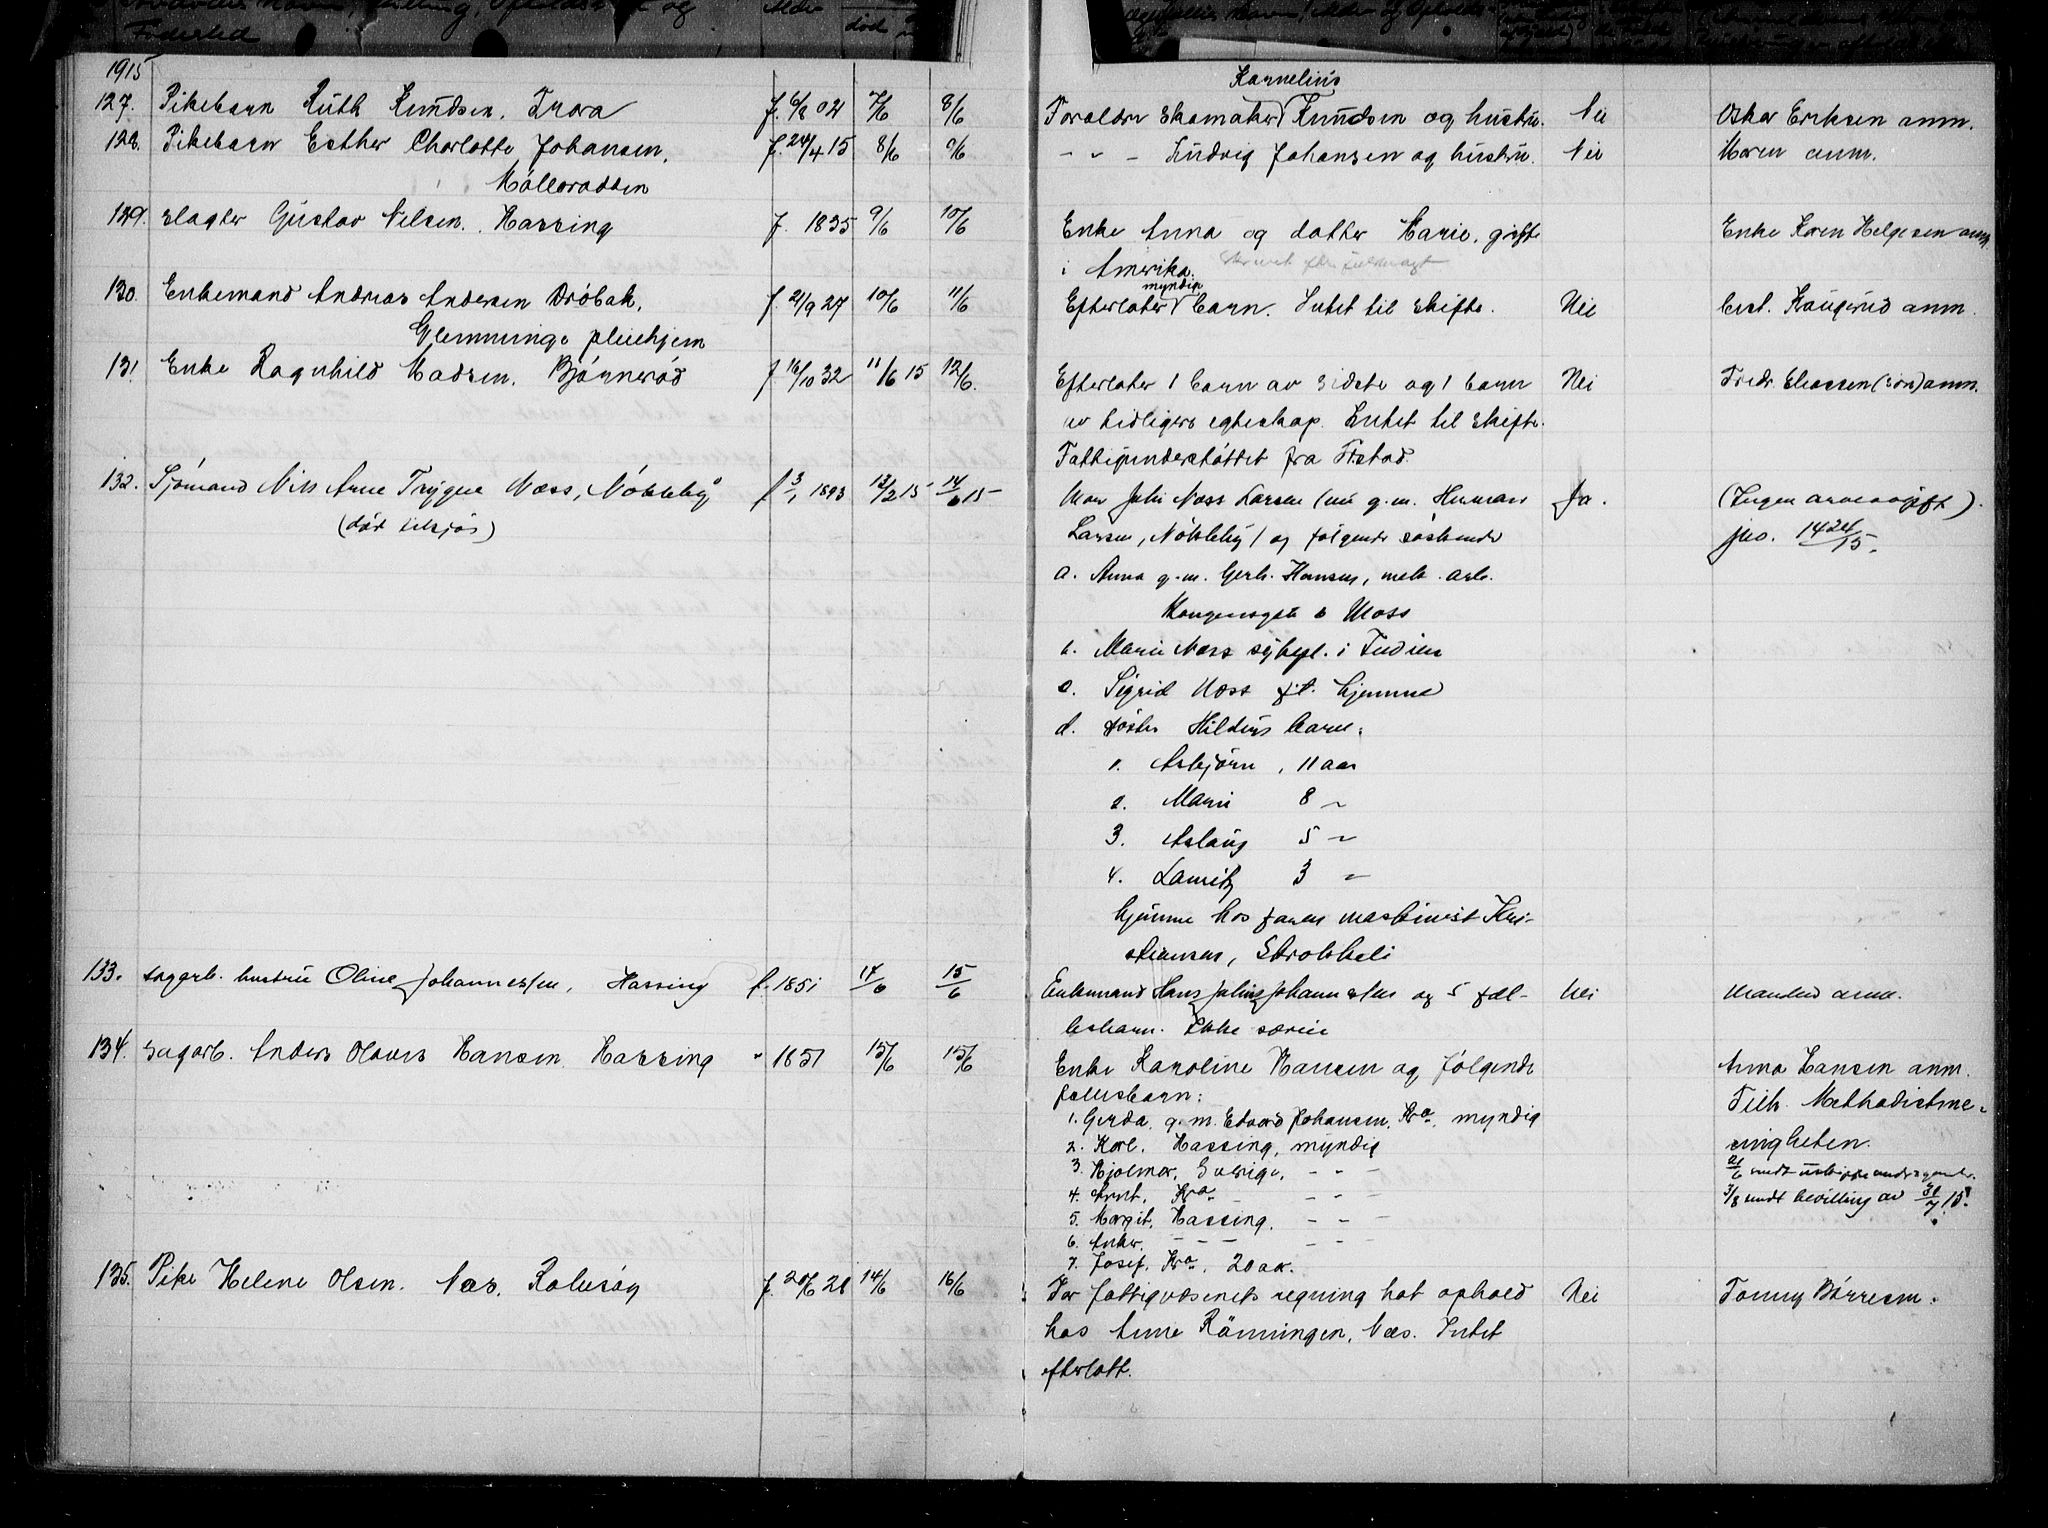 Fødested
død
1915
127. Pikebarn Ruth Knudsen, Trara f. 6/8 02 7/6 8/6
Kornelius
Forældre Skomaker Knudsen og hustru. Nei Oskar Eriksen anm.
128. Pikebarn Esther Charlotte Johansen, f. 24/4 15 8/6 9/6
- " - Ludvig Johansen og hustru. Nei Moren anm.
Møllerodden
129. Slagter Gustav Nilsen. Hassing f. 1835 9/6 10/6
Enke Anna og datter Marie, gift Enke Karen Helgesen anm
i Amerika.
130. Enkemand Andreas Andersen Drøbak, f. 21/9 27 10/6 11/6
myndig
Efterlater barn. Intet til skifte. Nei Chst. Haugerud anm.
Glemminge pleiehjem
131. Enke Ragnhild Madsen. Bjørnerød f 16/10 32 11/6 15 12/6.
Efterlater 1 barn av sidste og 1 barn Nei Fredr. Eliassen (søn) anm.
av tidligere egteskap. Intet til skifte.
Fattigunderstøttet fra F.stad.
132. Sjømand Nils Arne Trygve Næss, Nøkleby f 3/1 1893 12/2 15 14/6 15
(død tilsjøs)
Mor Juli Næss Larsen (nu g.m. Herman Ja. (Ingen arveavgift).
Larsen, Nøkleby) og følgende søskende jno. 1424/15.
a. Anna g.m. Gerh. Hansen, mek. arb.
Kongensgt 6 Moss
b. Marie Næss sykepl. i Indien
c. Sigrid Næss f.t. hjemme
d. søster Hildurs barn:
1. Asbjørn, 11 aar
2. Marie 8 "
3. Aslaug 5 "
4. Lauritz 3 "
hjemme hos faren maskinist Kri-
stiansen,
133. sagarb. hustru Oline Johannessen, Hassing f. 1851 14/6 15/6
Enkemand Hans Julius Johannessen og 5 fæl- Nei Manden anm.
lesbarn. Ikke særeie
134. Sagarb. Anders Olaves Hansen. Hassing " 1851 15/6 15/6
Enke Karoline Hansen og følgende Anna Hansen anm.
fællesbarn: Tilh. Methodistme-
1. Gerda, g.m. Edvard Johansen, Kra., myndig
nigheten.
2. Karl. Hassing, myndig
3. Hjalmar, Sverige, - " -
4. Arnt, Kra - " -
3/8 sendt bevilling av 31/7 15.
5. Margit, Hassing, - " -
6. Anker. - " - - " -
7. Josef, Kra, 20 aar.
135. Pike Helene Olsen. Næs, Rolvsøy f. 20/6 28 14/6 16/6
For fattigvæsenets regning hat ophold Nei Tomny Børresen.
hos Anne Rønningen, Næs. Intet
efterlatt.